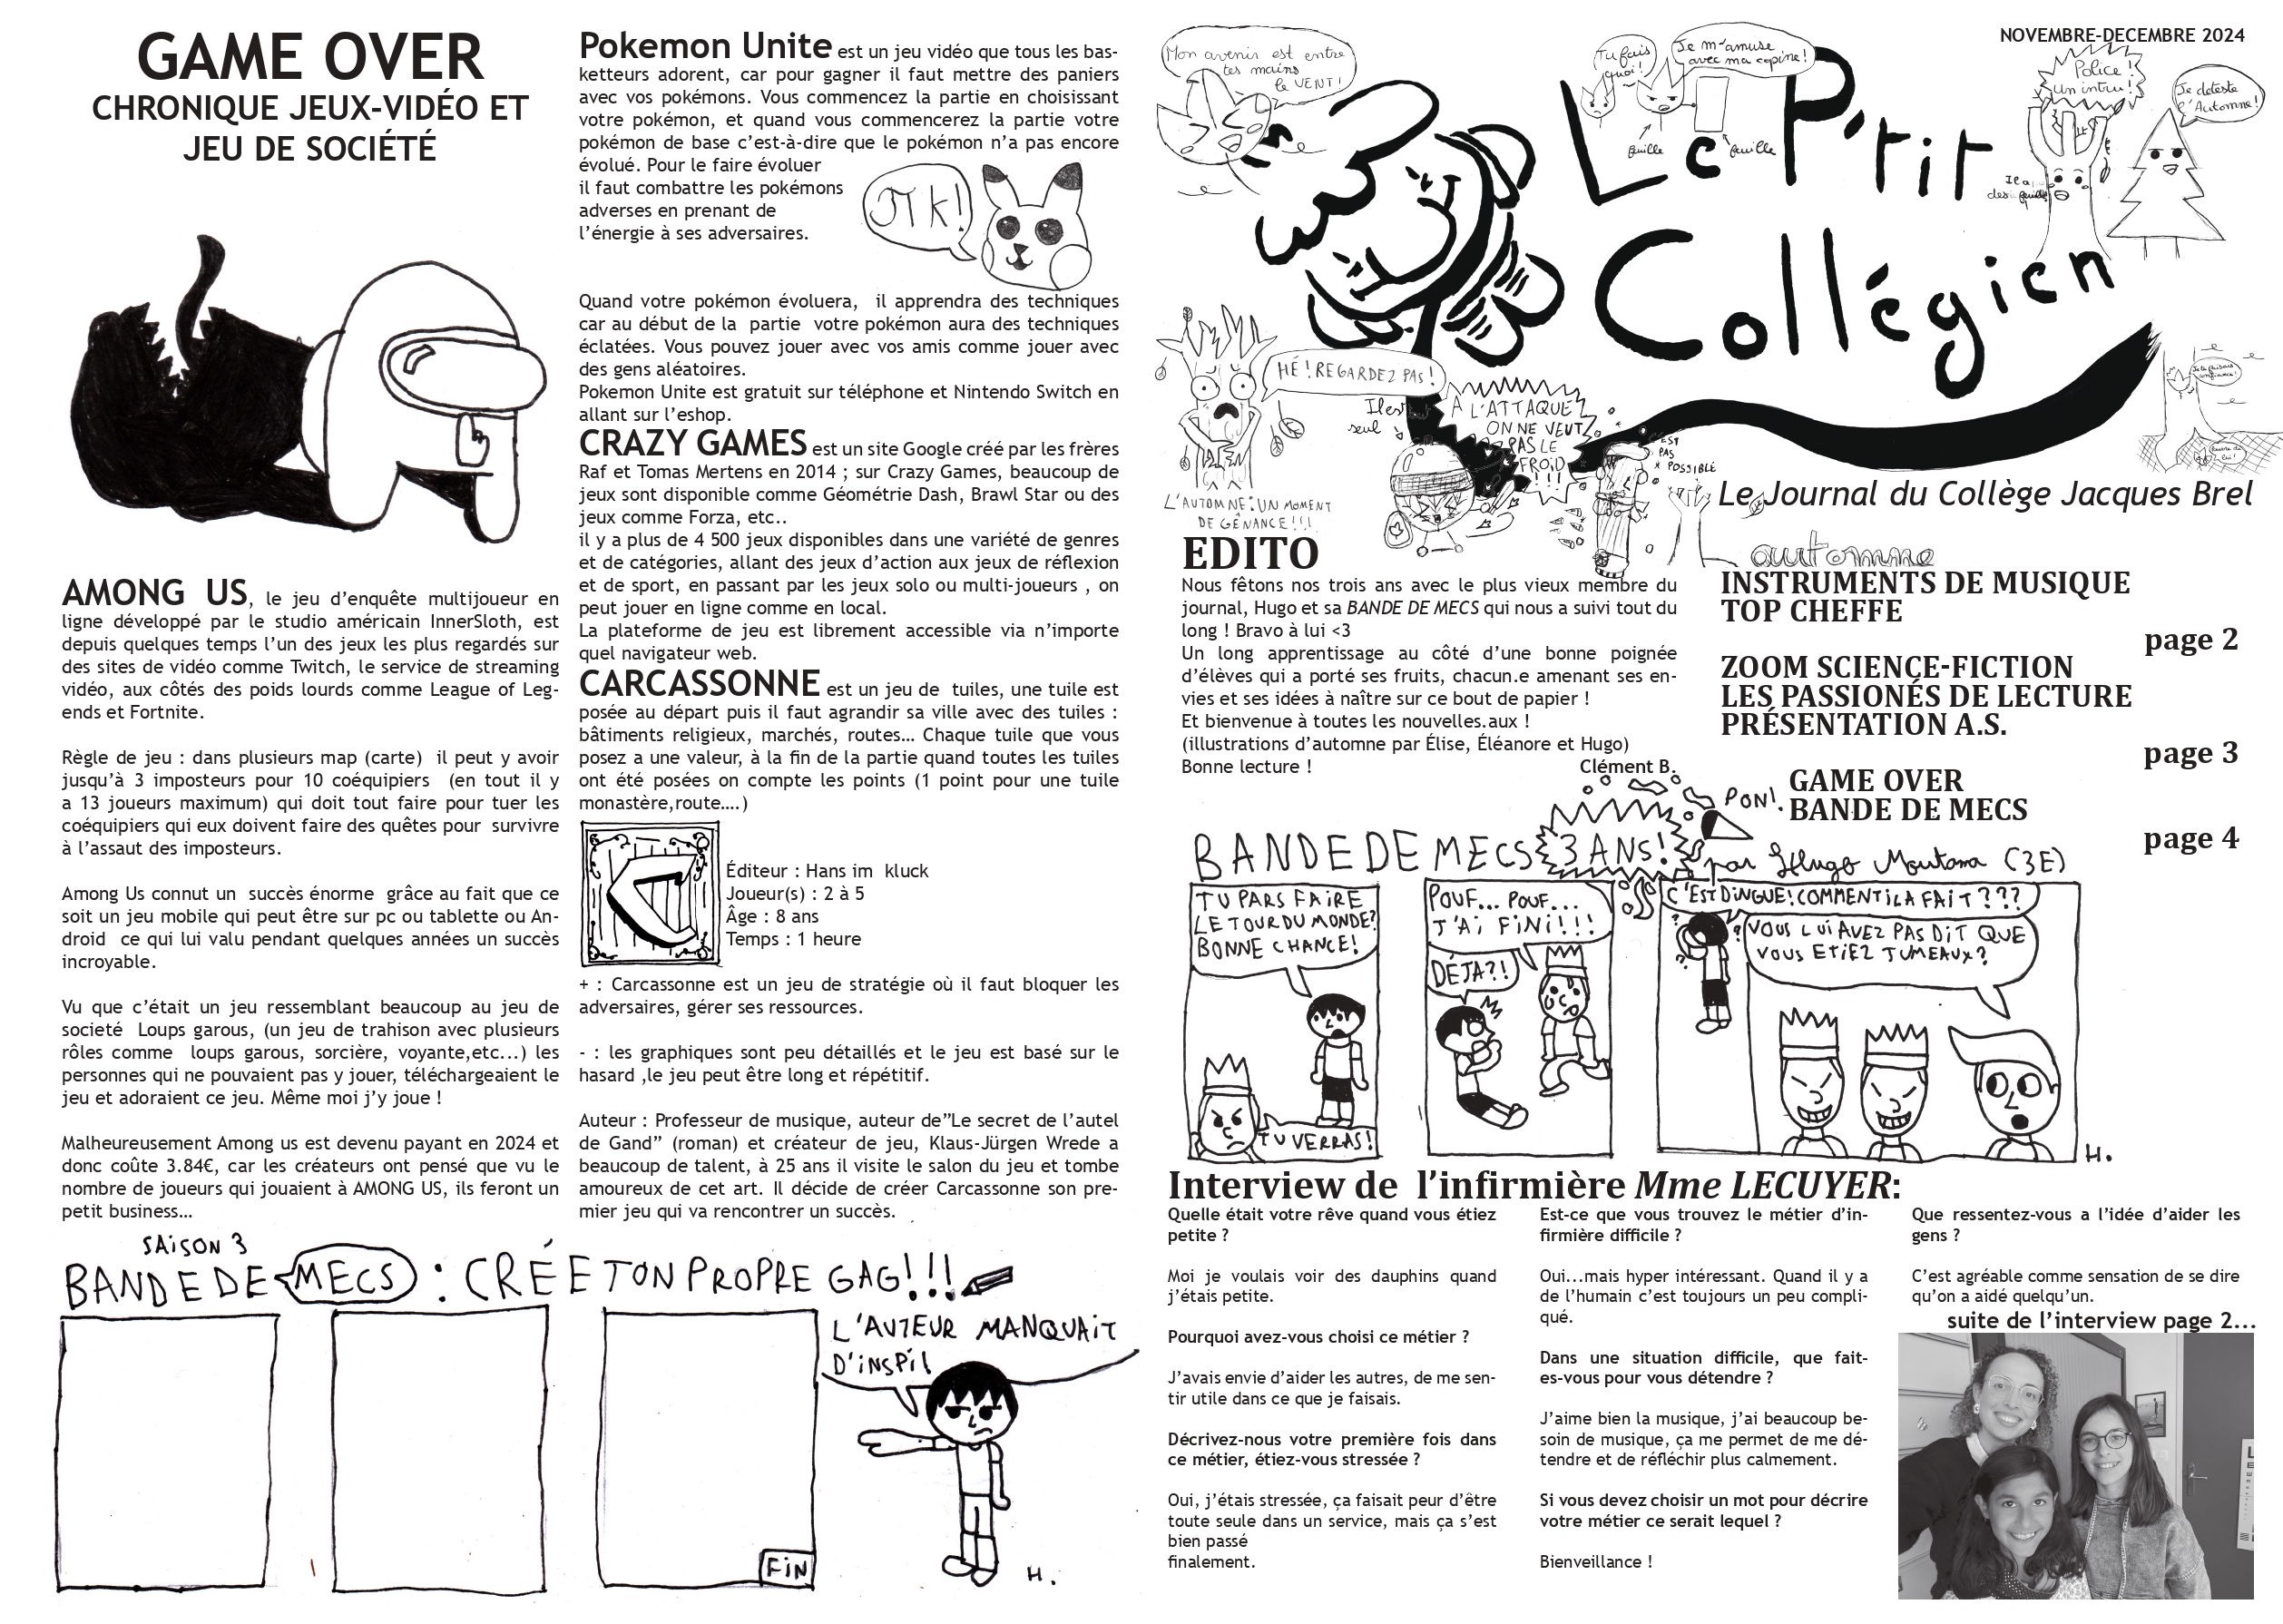 GAME OVER
CHRONIQUE JEUX-VIDÉO ET
JEU DE SOCIÉTÉ
AMONG US, le jeu d’enquête multijoueur en
ligne développé par le studio américain InnerSloth, est
depuis quelques temps l’un des jeux les plus regardés sur
des sites de vidéo comme Twitch, le service de streaming
vidéo, aux côtés des poids lourds comme League of Leg-
ends et Fortnite.
Règle de jeu : dans plusieurs map (carte) il peut y avoir
jusqu’à 3 imposteurs pour 10 coéquipiers (en tout il y
a 13 joueurs maximum) qui doit tout faire pour tuer les
coéquipiers qui eux doivent faire des quêtes pour survivre
à l’assaut des imposteurs.
Among Us connut un succès énorme grâce au fait que ce
soit un jeu mobile qui peut être sur pc ou tablette ou An-
droid ce qui lui valu pendant quelques années un succès
incroyable.
Vu que c’était un jeu ressemblant beaucoup au jeu de
societé Loups garous, (un jeu de trahison avec plusieurs
rôles comme loups garous, sorcière, voyante,etc...) les
personnes qui ne pouvaient pas y jouer, téléchargeaient le
jeu et adoraient ce jeu. Même moi j’y joue !
Malheureusement Among us est devenu payant en 2024 et
donc coûte 3.84€, car les créateurs ont pensé que vu le
nombre de joueurs qui jouaient à AMONG US, ils feront un
petit business…
Pokemon Unite est un jeu vidéo que tous les bas-
ketteurs adorent, car pour gagner il faut mettre des paniers
avec vos pokémons. Vous commencez la partie en choisissant
votre pokémon, et quand vous commencerez la partie votre
pokémon de base c’est-à-dire que le pokémon n’a pas encore
évolué. Pour le faire évoluer
il faut combattre les pokémons
adverses en prenant de
l’énergie à ses adversaires.
JTK!
Quand votre pokémon évoluera, il apprendra des techniques
car au début de la partie votre pokémon aura des techniques
éclatées. Vous pouvez jouer avec vos amis comme jouer avec
des gens aléatoires.
Pokemon Unite est gratuit sur téléphone et Nintendo Switch en
allant sur l’eshop.
CRAZY GAMES est un site Google créé par les frères
Raf et Tomas Mertens en 2014 ; sur Crazy Games, beaucoup de
jeux sont disponible comme Géométrie Dash, Brawl Star ou des
jeux comme Forza, etc..
il y a plus de 4 500 jeux disponibles dans une variété de genres
et de catégories, allant des jeux d’action aux jeux de réflexion
et de sport, en passant par les jeux solo ou multi-joueurs , on
peut jouer en ligne comme en local.
La plateforme de jeu est librement accessible via n’importe
quel navigateur web.
CARCASSONNE est un jeu de tuiles, une tuile est
posée au départ puis il faut agrandir sa ville avec des tuiles :
bâtiments religieux, marchés, routes… Chaque tuile que vous
posez a une valeur, à la fin de la partie quand toutes les tuiles
ont été posées on compte les points (1 point pour une tuile
monastère,route….)
C
Éditeur : Hans im kluck
Joueur(s) : 2 à 5
Âge : 8 ans
Temps : 1 heure
+ : Carcassonne est un jeu de stratégie où il faut bloquer les
adversaires, gérer ses ressources.
- : les graphiques sont peu détaillés et le jeu est basé sur le
hasard ,le jeu peut être long et répétitif.
Auteur : Professeur de musique, auteur de”Le secret de l’autel
de Gand” (roman) et créateur de jeu, Klaus-Jürgen Wrede a
beaucoup de talent, à 25 ans il visite le salon du jeu et tombe
amoureux de cet art. Il décide de créer Carcassonne son pre-
mier jeu qui va rencontrer un succès.
SAISON 3
BANDE DE MECS : CRÉE TON PROPRE GAG!!!
L'AUTEUR MANQUAIT
D'INSPI!
FIN
H.
NOVEMBRE-DECEMBRE 2024
Mon avenir est entre
tes mains
le VENT!
Tu fais
quoi!
Je m'amuse
avec ma copine!
feuille
feuille
Police!
Un intru!
Je deteste
l'Automne!
Il a
des
Le P'tit
Collégien
HÉ! REGARDEZ PAS!
L'AUTOMNE: UN MOMENT
DE GÊNANCE!!!
Il est
seul
À L'ATTAQUE
ON NE VEUT
PAS LE
FROID
!!!
C'EST
PAS
POSSIBLE
Le Journal du Collège Jacques Brel
automne
EDITO
Nous fêtons nos trois ans avec le plus vieux membre du
journal, Hugo et sa BANDE DE MECS qui nous a suivi tout du
long ! Bravo à lui <3
Un long apprentissage au côté d’une bonne poignée
d’élèves qui a porté ses fruits, chacun.e amenant ses en-
vies et ses idées à naître sur ce bout de papier !
Et bienvenue à toutes les nouvelles.aux !
(illustrations d’automne par Élise, Éléanore et Hugo)
Bonne lecture !
Clément B.
INSTRUMENTS DE MUSIQUE
TOP CHEFFE
page 2
ZOOM SCIENCE-FICTION
LES PASSIONÉS DE LECTURE
PRÉSENTATION A.S.
page 3
GAME OVER
BANDE DE MECS
page 4
BANDE DE MECS 3 ANS!
PON!
par Hugo Montana (3E)
TU PARS FAIRE
LE TOUR DU MONDE?
BONNE CHANCE!
TU VERRAS!
POUF... POUF...
J'AI FINI!!!
DÉJA?!
C'EST DINGUE! COMMENT IL A FAIT???
VOUS LUI AVEZ PAS DIT QUE
VOUS ETIEZ JUMEAUX?
H.
Interview de l’infirmière Mme LECUYER:
Quelle était votre rêve quand vous étiez
petite ?
Moi je voulais voir des dauphins quand
j’étais petite.
Pourquoi avez-vous choisi ce métier ?
J’avais envie d’aider les autres, de me sen-
tir utile dans ce que je faisais.
Décrivez-nous votre première fois dans
ce métier, étiez-vous stressée ?
Oui, j’étais stressée, ça faisait peur d’être
toute seule dans un service, mais ça s’est
bien passé
finalement.
Est-ce que vous trouvez le métier d’in-
firmière difficile ?
Oui...mais hyper intéressant. Quand il y a
de l’humain c’est toujours un peu compli-
qué.
Dans une situation difficile, que fait-
es-vous pour vous détendre ?
J’aime bien la musique, j’ai beaucoup be-
soin de musique, ça me permet de me dé-
tendre et de réfléchir plus calmement.
Si vous devez choisir un mot pour décrire
votre métier ce serait lequel ?
Bienveillance !
Que ressentez-vous a l’idée d’aider les
gens ?
C’est agréable comme sensation de se dire
qu’on a aidé quelqu’un.
suite de l’interview page 2...